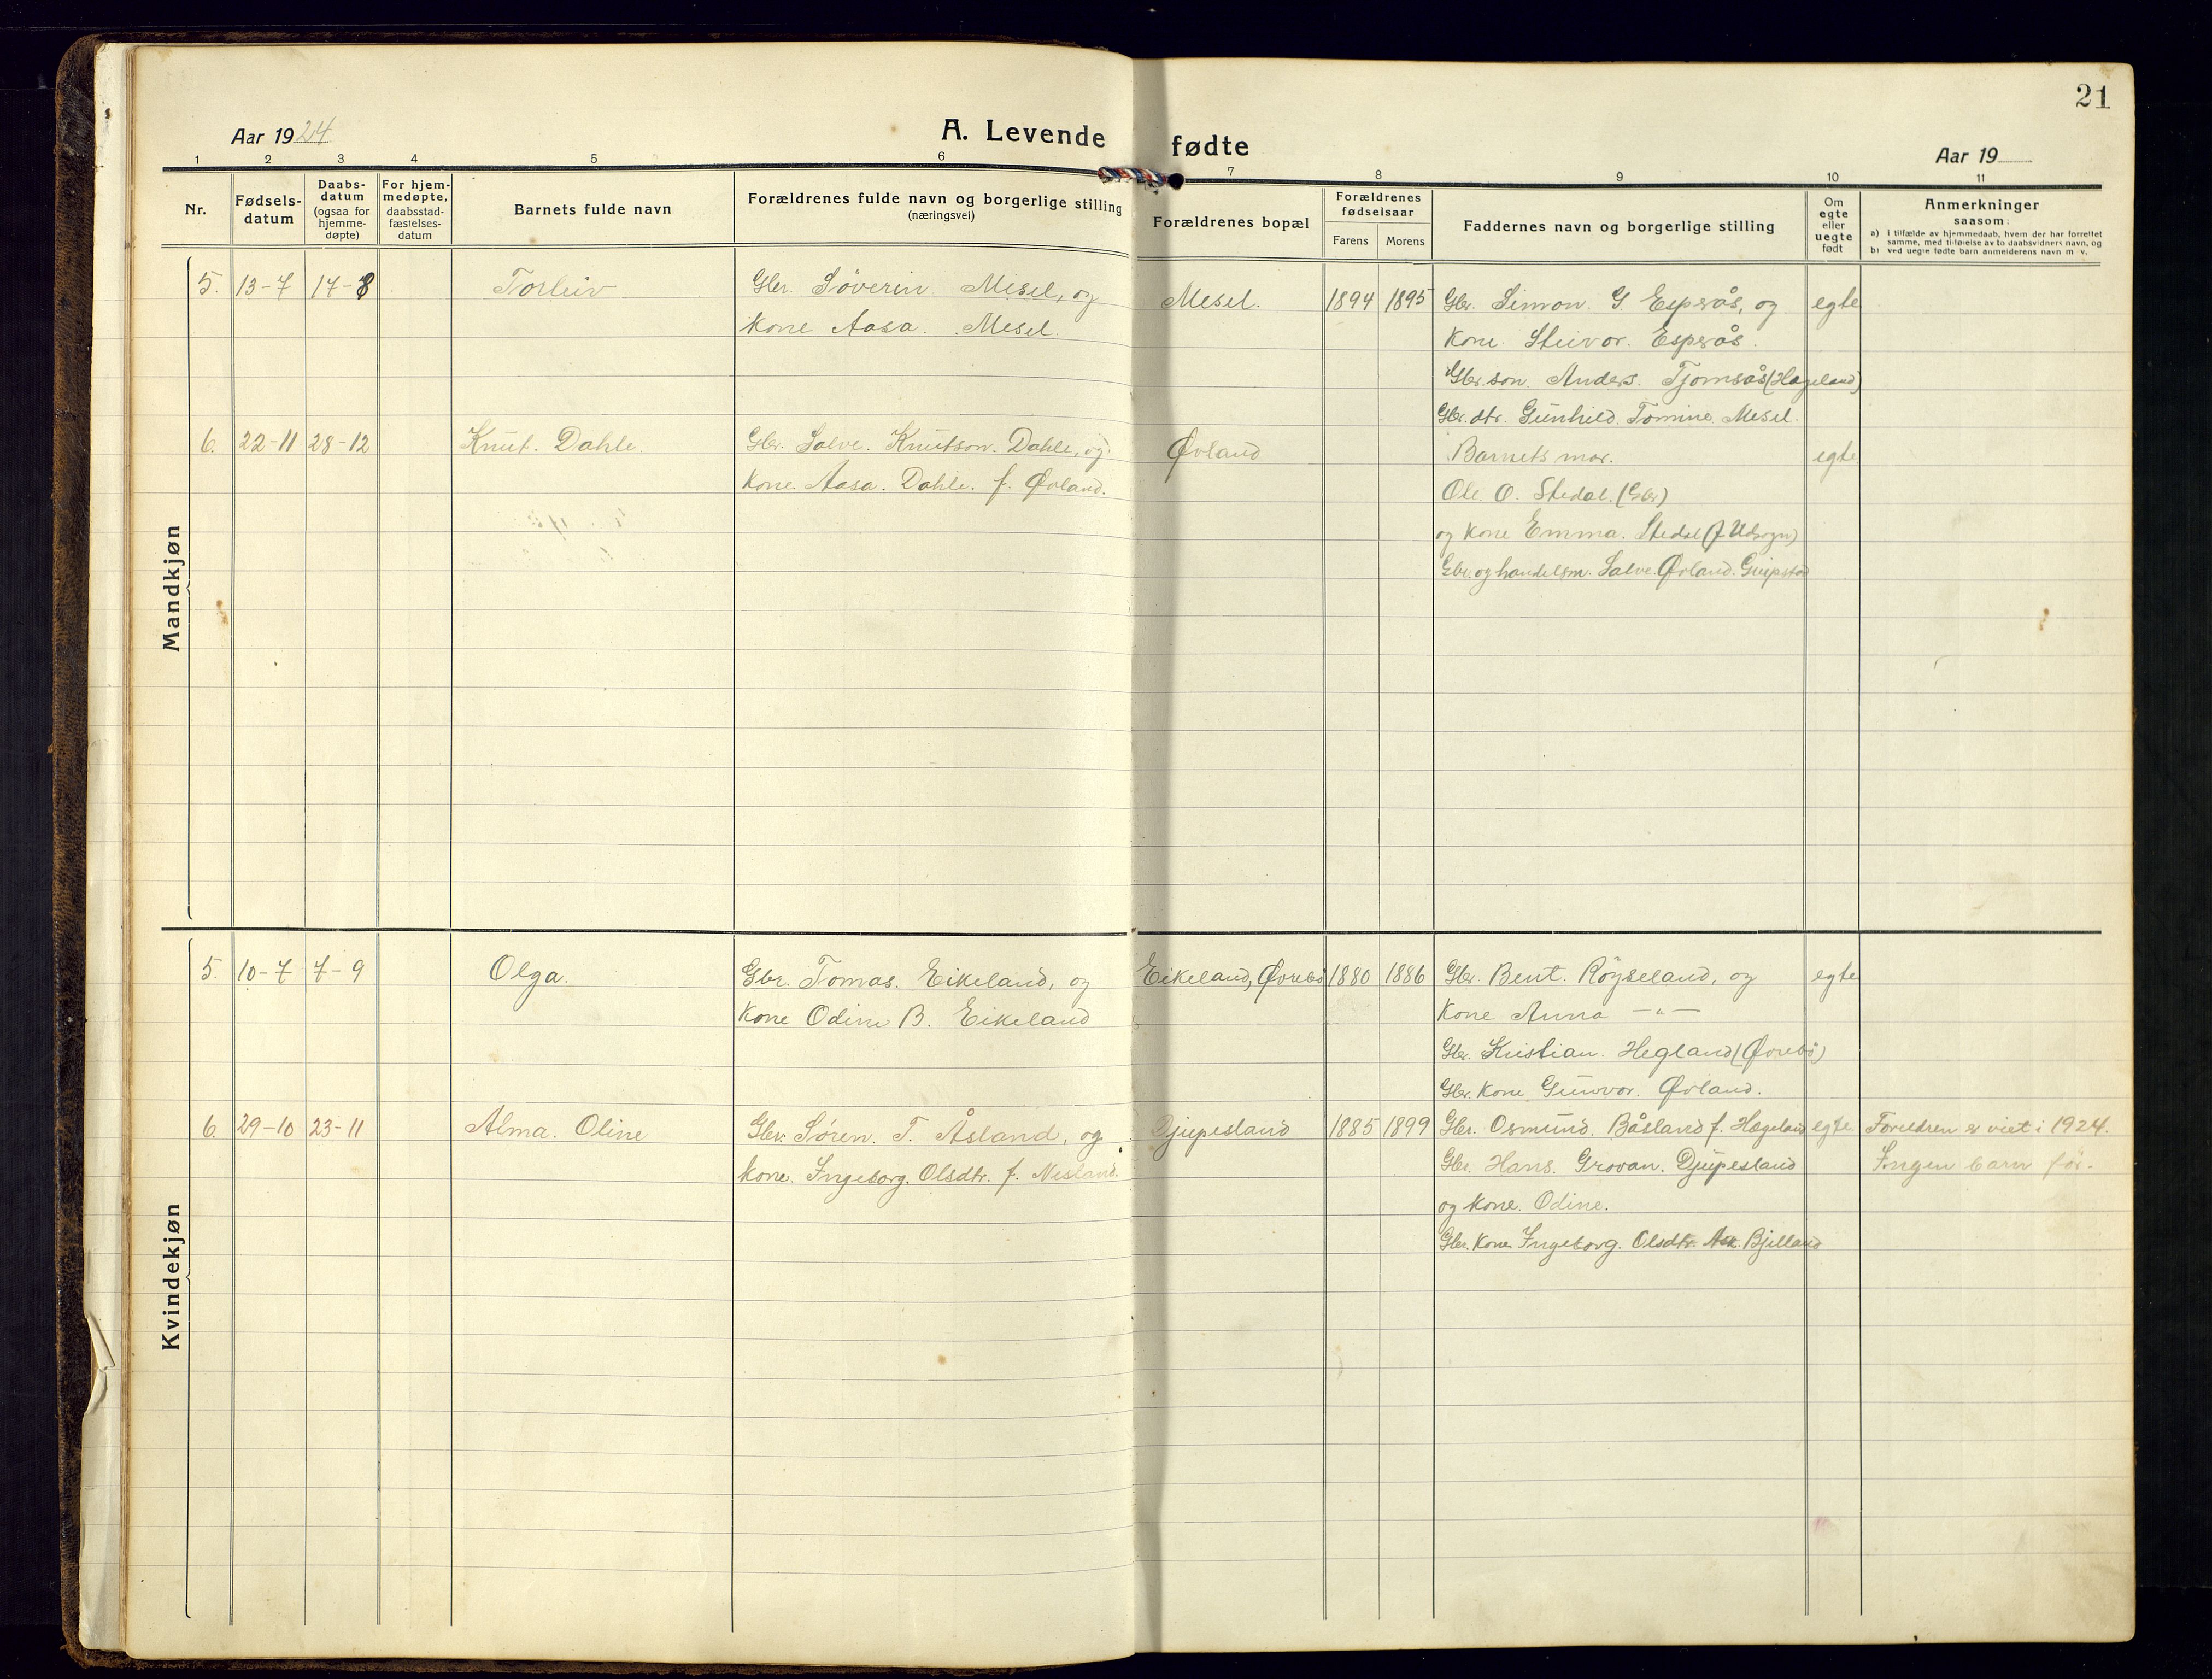 21
Aar 1924
A. Levende fødte
Aar 19
1 2 3 4 5 6 7 8 9 10 11
Nr.
Fødsels-
datum
Daabs-
datum
(ogsaa for
hjemme-
døpte)
For hjem-
medøpte,
daabsstad-
fæstelses-
datum
Barnets fulde navn
Forældrenes fulde navn og borgerlige stilling
(næringsvei)
Forældrenes bopæl
Forældrenes
fødselsaar
Farens Morens
Faddernes navn og borgerlige stilling
Om
egte
eller
uegte
født
Anmerkninger
saasom:
a) i tilfælde av hjemmedaab, hvem der har forrettet
samme, med tilføielse av to daabsvidners navn, og
b) ved uegte fødte barn anmelderens navn m. v.
Mandkjøn
5. 13-7 17-8 Torleiv Gbr. Söverin Mesel, og Mesel. 1894 1895 Gbr. Simon. G. Esperås, og egte
Kone Aasa. Mesel. Kone. Steivor. Esperås.
Gbr. son. Anders. Tjomsås (Hageland)
Gbr. dtr. Gunhild. Tomine. Mesel.
6. 22-11 28-12 Knut. Dahle. Gbr. Salve. Knutson. Dahle, og Øvland Barnets mor. egte
Kone. Aasa. Dahle. f. Øvland. Ole. O. Stedal. (Gbr)
og Kone Emma. Stedal
Gbr. og handelsm. Salve. Øvland. Greipstad
Kvindekjøn
5. 10-7 7-9 Olga. Gbr. Tomas. Eikeland, og Eikeland, Øvrebö 1880 1886 Gbr. Bent. Röyseland, og egte
Kone Odine B. Eikeland Kone Anna —"—
Gbr. Kristian. Hegland (Øvrebö)
Gbr. Kone Gunvor. Øvland.
6. 29-10 23-11 Alma. Oline Gbr. Søren. T. Åsland, og Djupesland 1885 1899 Gbr. Osmund. Båsland f. Hægeland egte Foreldren er viet i 1924.
Kone. Ingeborg. Olsdtr. f. Nesland. Gbr. Hans. Grovan. Djupesland Ingen barn för.
og Kone. Odine.
Gbr. Kone. Ingeborg. Olsdtr. Bjelland